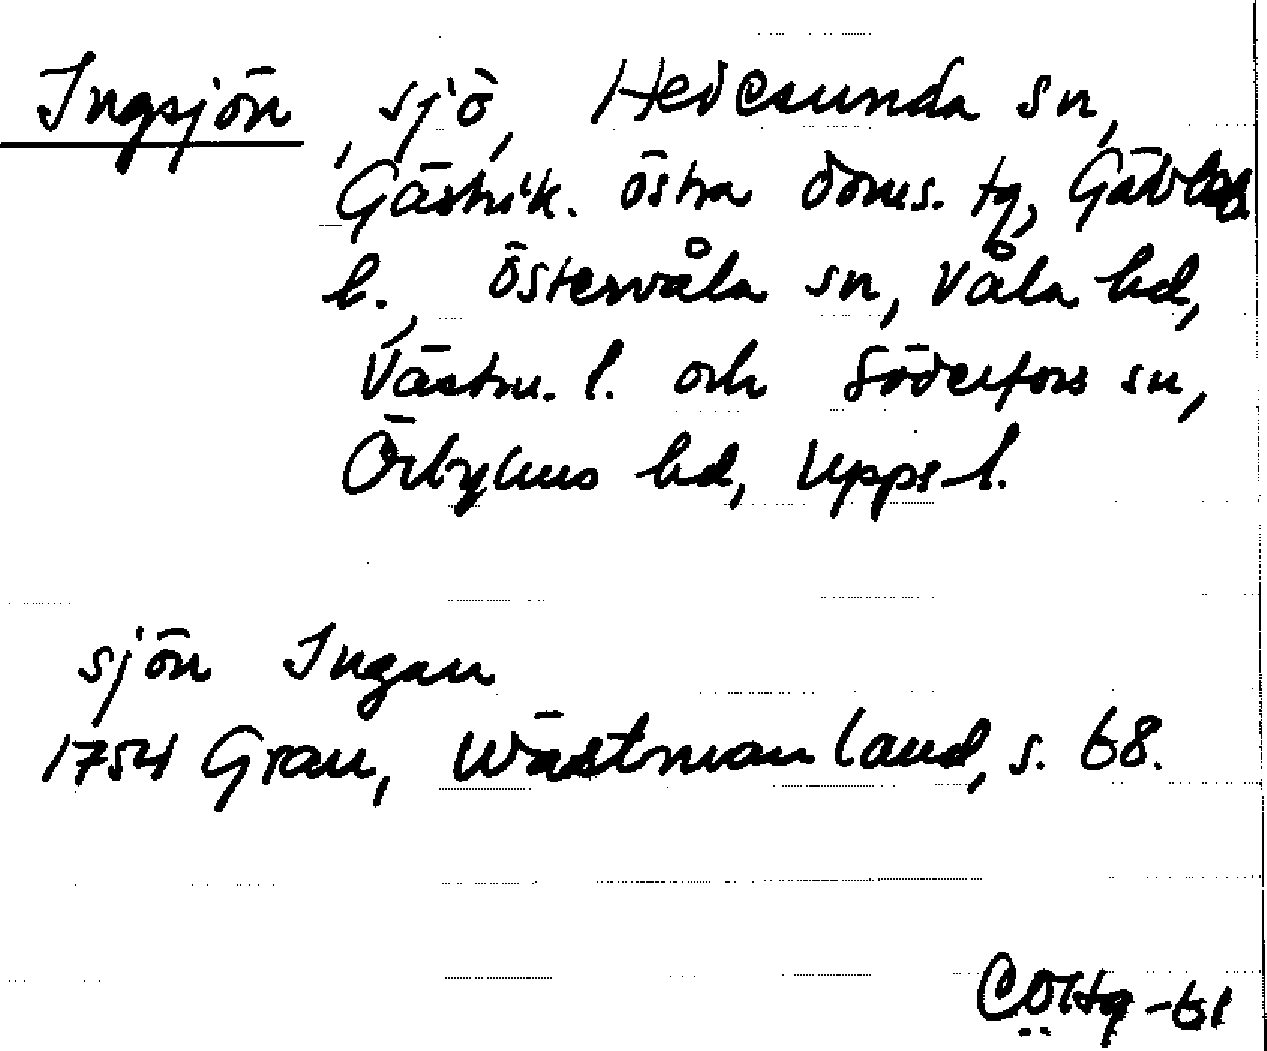 Ingsjön, sjö, Hedesunda sn,
Gästrik. östra doms. tg, Gävleb
l., Östervåla sn, Våla hd,
Västm. l. och Söderfors sn,
Örbyhus hd, Upps. l.
sjön Ingan
1754 Grau, Wästmanland, s. 68.
-61